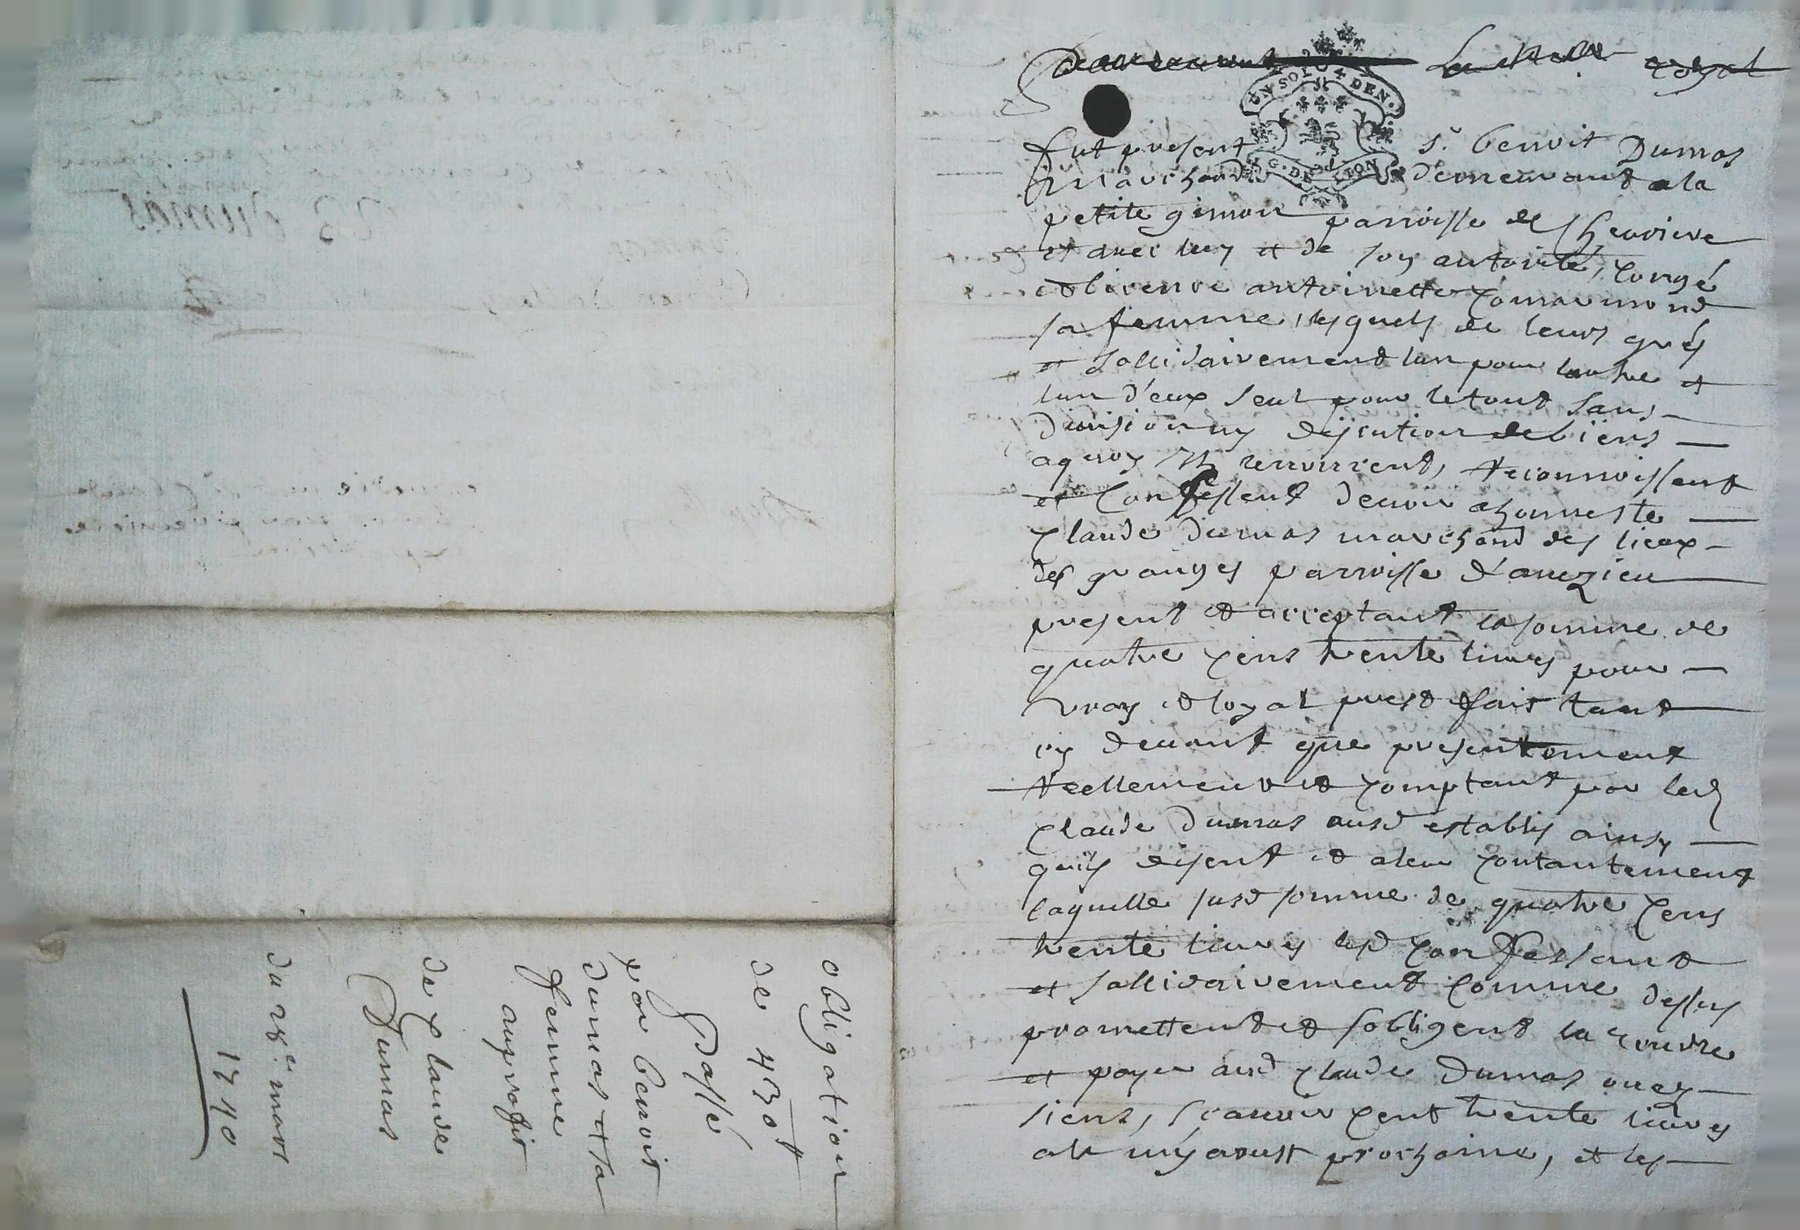 Pardevant Le No.re royal
UN SOL 4 DEN.
G. DE LION
fut present s.r benoit Dumas
marchand demeurant a la
petite gimon parroisse de Chevriere
et avec luy et de son autorité, congé
et licence antoinette
sa femme, lesquels de leurs grés
et sollidairement lun pour lautre et
lun d'eux seul pour le tout sans
division ny discution de biens
aquoy ils renoncent, Reconnoissent
et Confessent devoir a honneste
Claude Dumas marchand des lieux
des granges parroisse d'aveizieu
present et acceptant la somme de
quatre cens trente livres pour
vray et loyal prest fait tant
cy devant que presentement
Reellement et comptant par led
Claude Dumas ausd establis ainsy
quils disent et a leur contantement
laquelle susd somme de quatre cens
trente livres lesd Confessant
et sollidairement comme dessus
promettent et sobligent la rendre
et payer aud Claude Dumas ou ez
siens, scavoir cent trente livres
a la my aoust prochaine, et les
obligation
de 430 tt
Passé
par benoit
dumas et sa
femme
au profit
de Claude
Dumas
du 28.e mars
1740